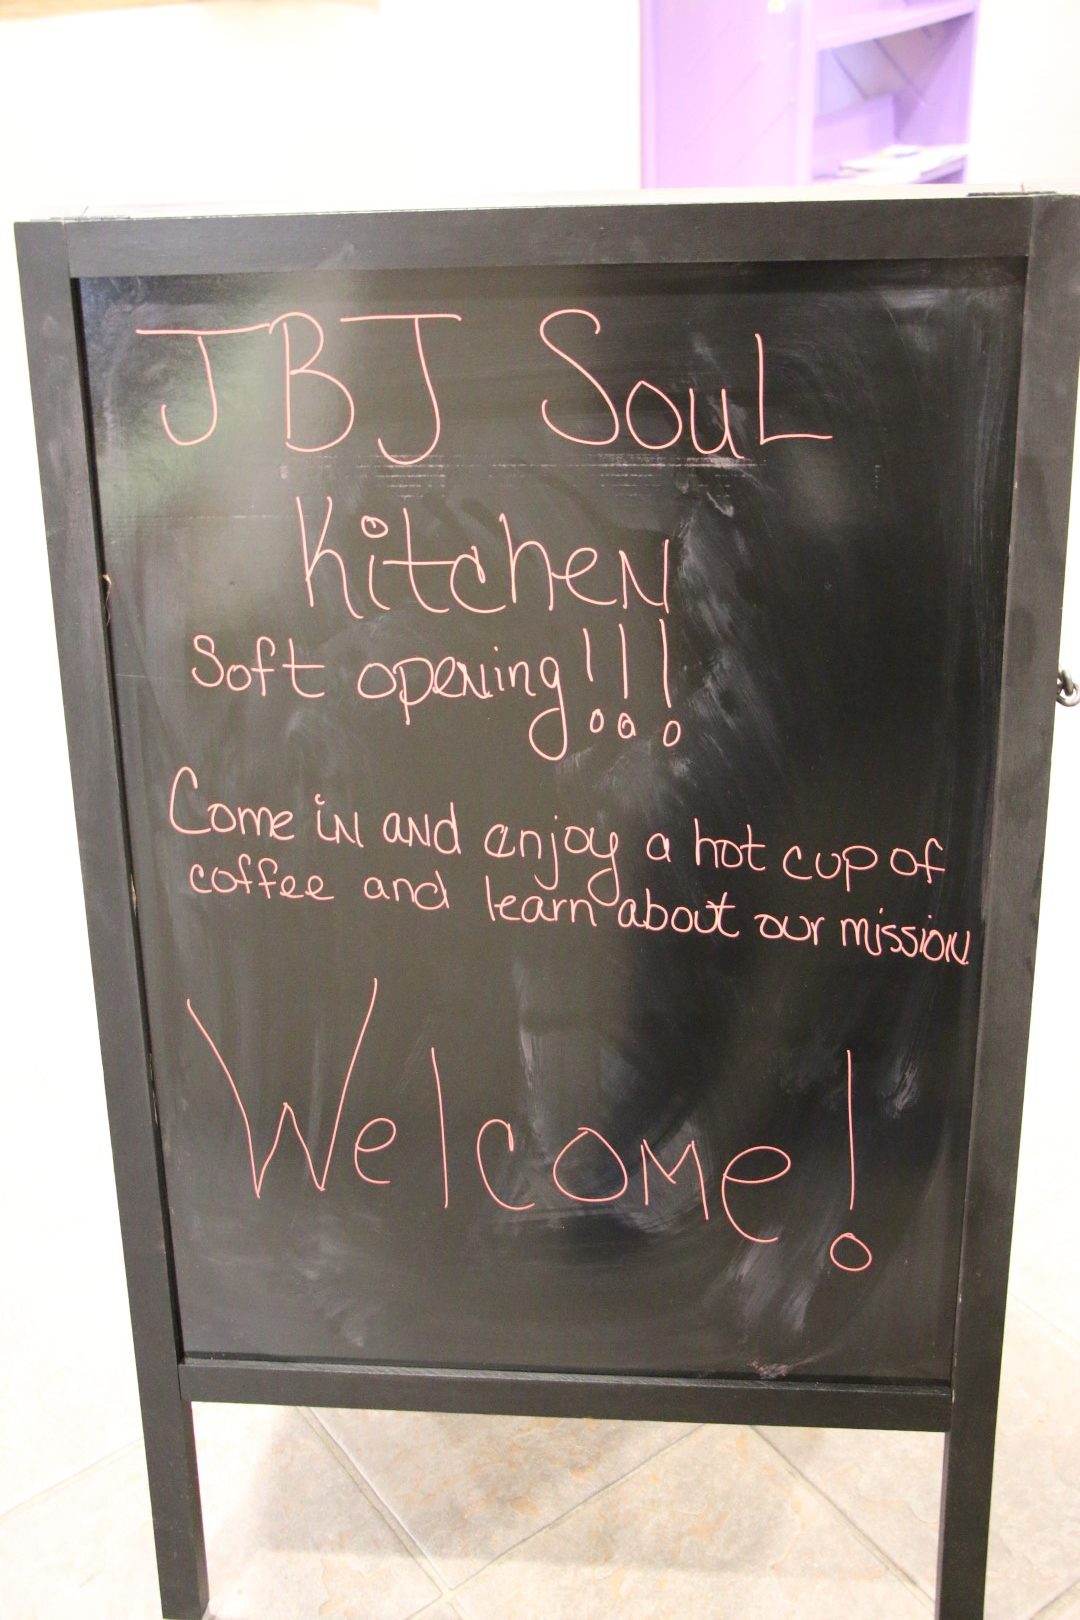 JBJ Soul
Kitchen
Soft opening!!!
Come in and enjoy a hot cup of
coffee and learn about our mission
Welcome!